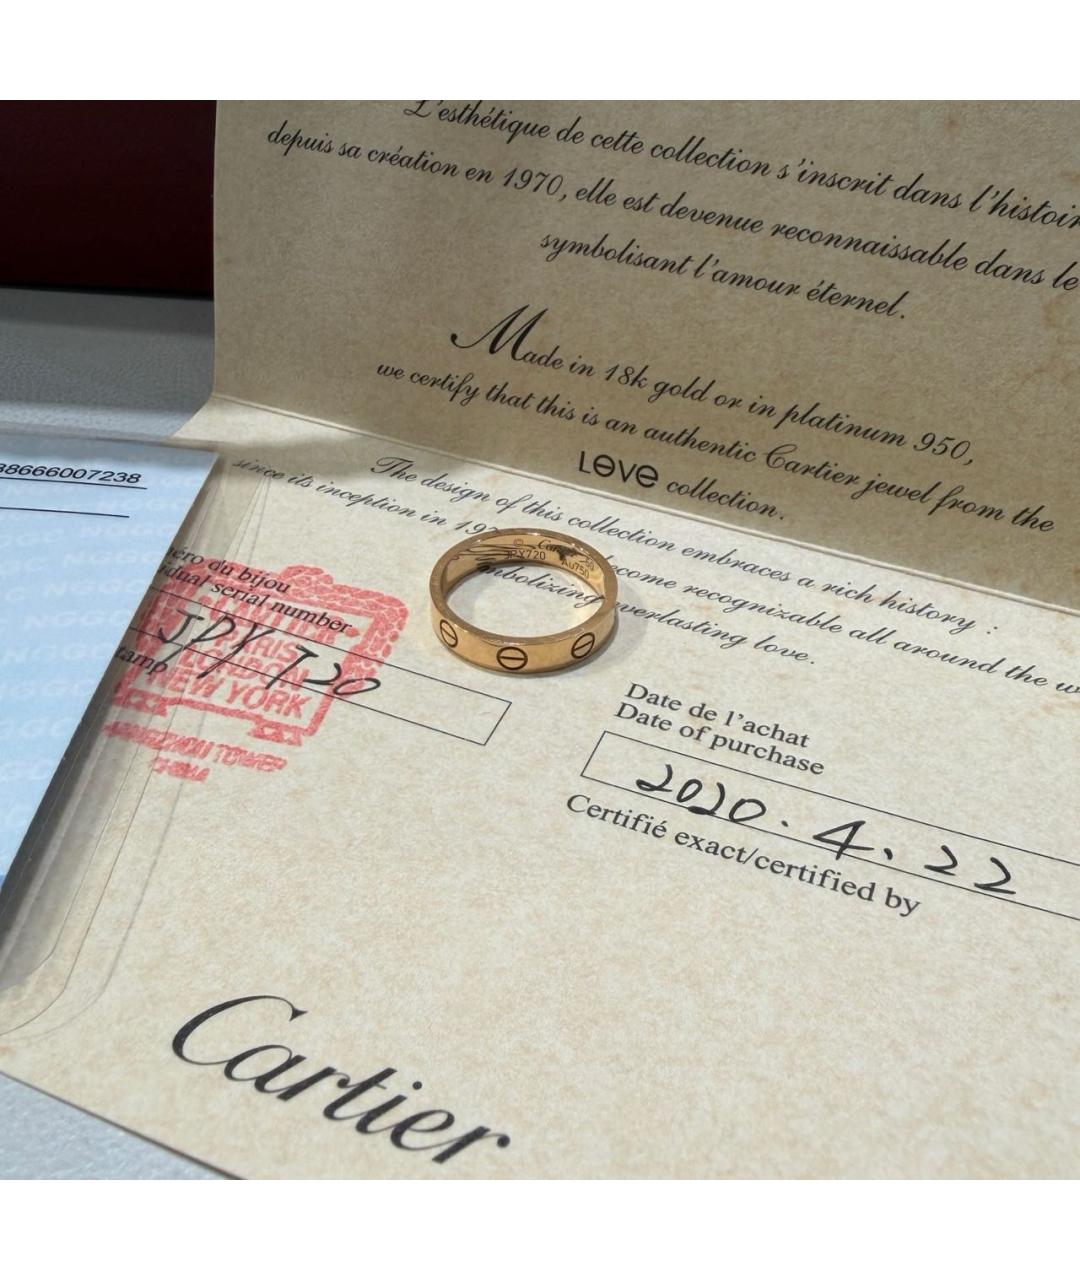 L'esthétique de cette collection s'inscrit dans l'histoir
depuis sa création en 1970, elle est devenue reconnaissable dans le
symbolisant l'amour éternel.
Made in 18k gold or in platinum 950,
we certify that this is an authentic Cartier jewel from the
LOVE collection.
The design of this collection embraces a rich history :
since its inception in 197 become recognizable all around the w
symbolizing everlasting love.
38666007238
© Cartier 50
JPY720 Au750
éro du bijou
idual serial number
JPY 720
tamp
PARIS
LONDON
NEW YORK
TOWER
CHINA
Date de l'achat
Date of purchase
2020.4.22
Certifié exact/certified by
Cartier